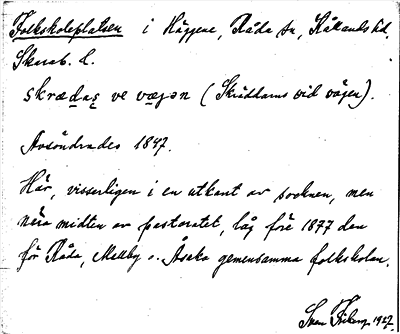 Folkskoleplatsen i Häggene, Råda sn, Kållands hd,
Skarab. l.
skræda̲s̲ ve væ̲gən (Skräddarns vid vägen).
Avsöndrades 1847.
Här, visserligen i en utkant av socknen, men
nära midten av pastoratet, låg före 1877 den
för Råda, Mellby o. Åsaka gemensamma folkskolan.
Sven 1927.